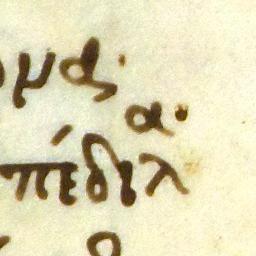 ομάς·
α·
πέδιλ